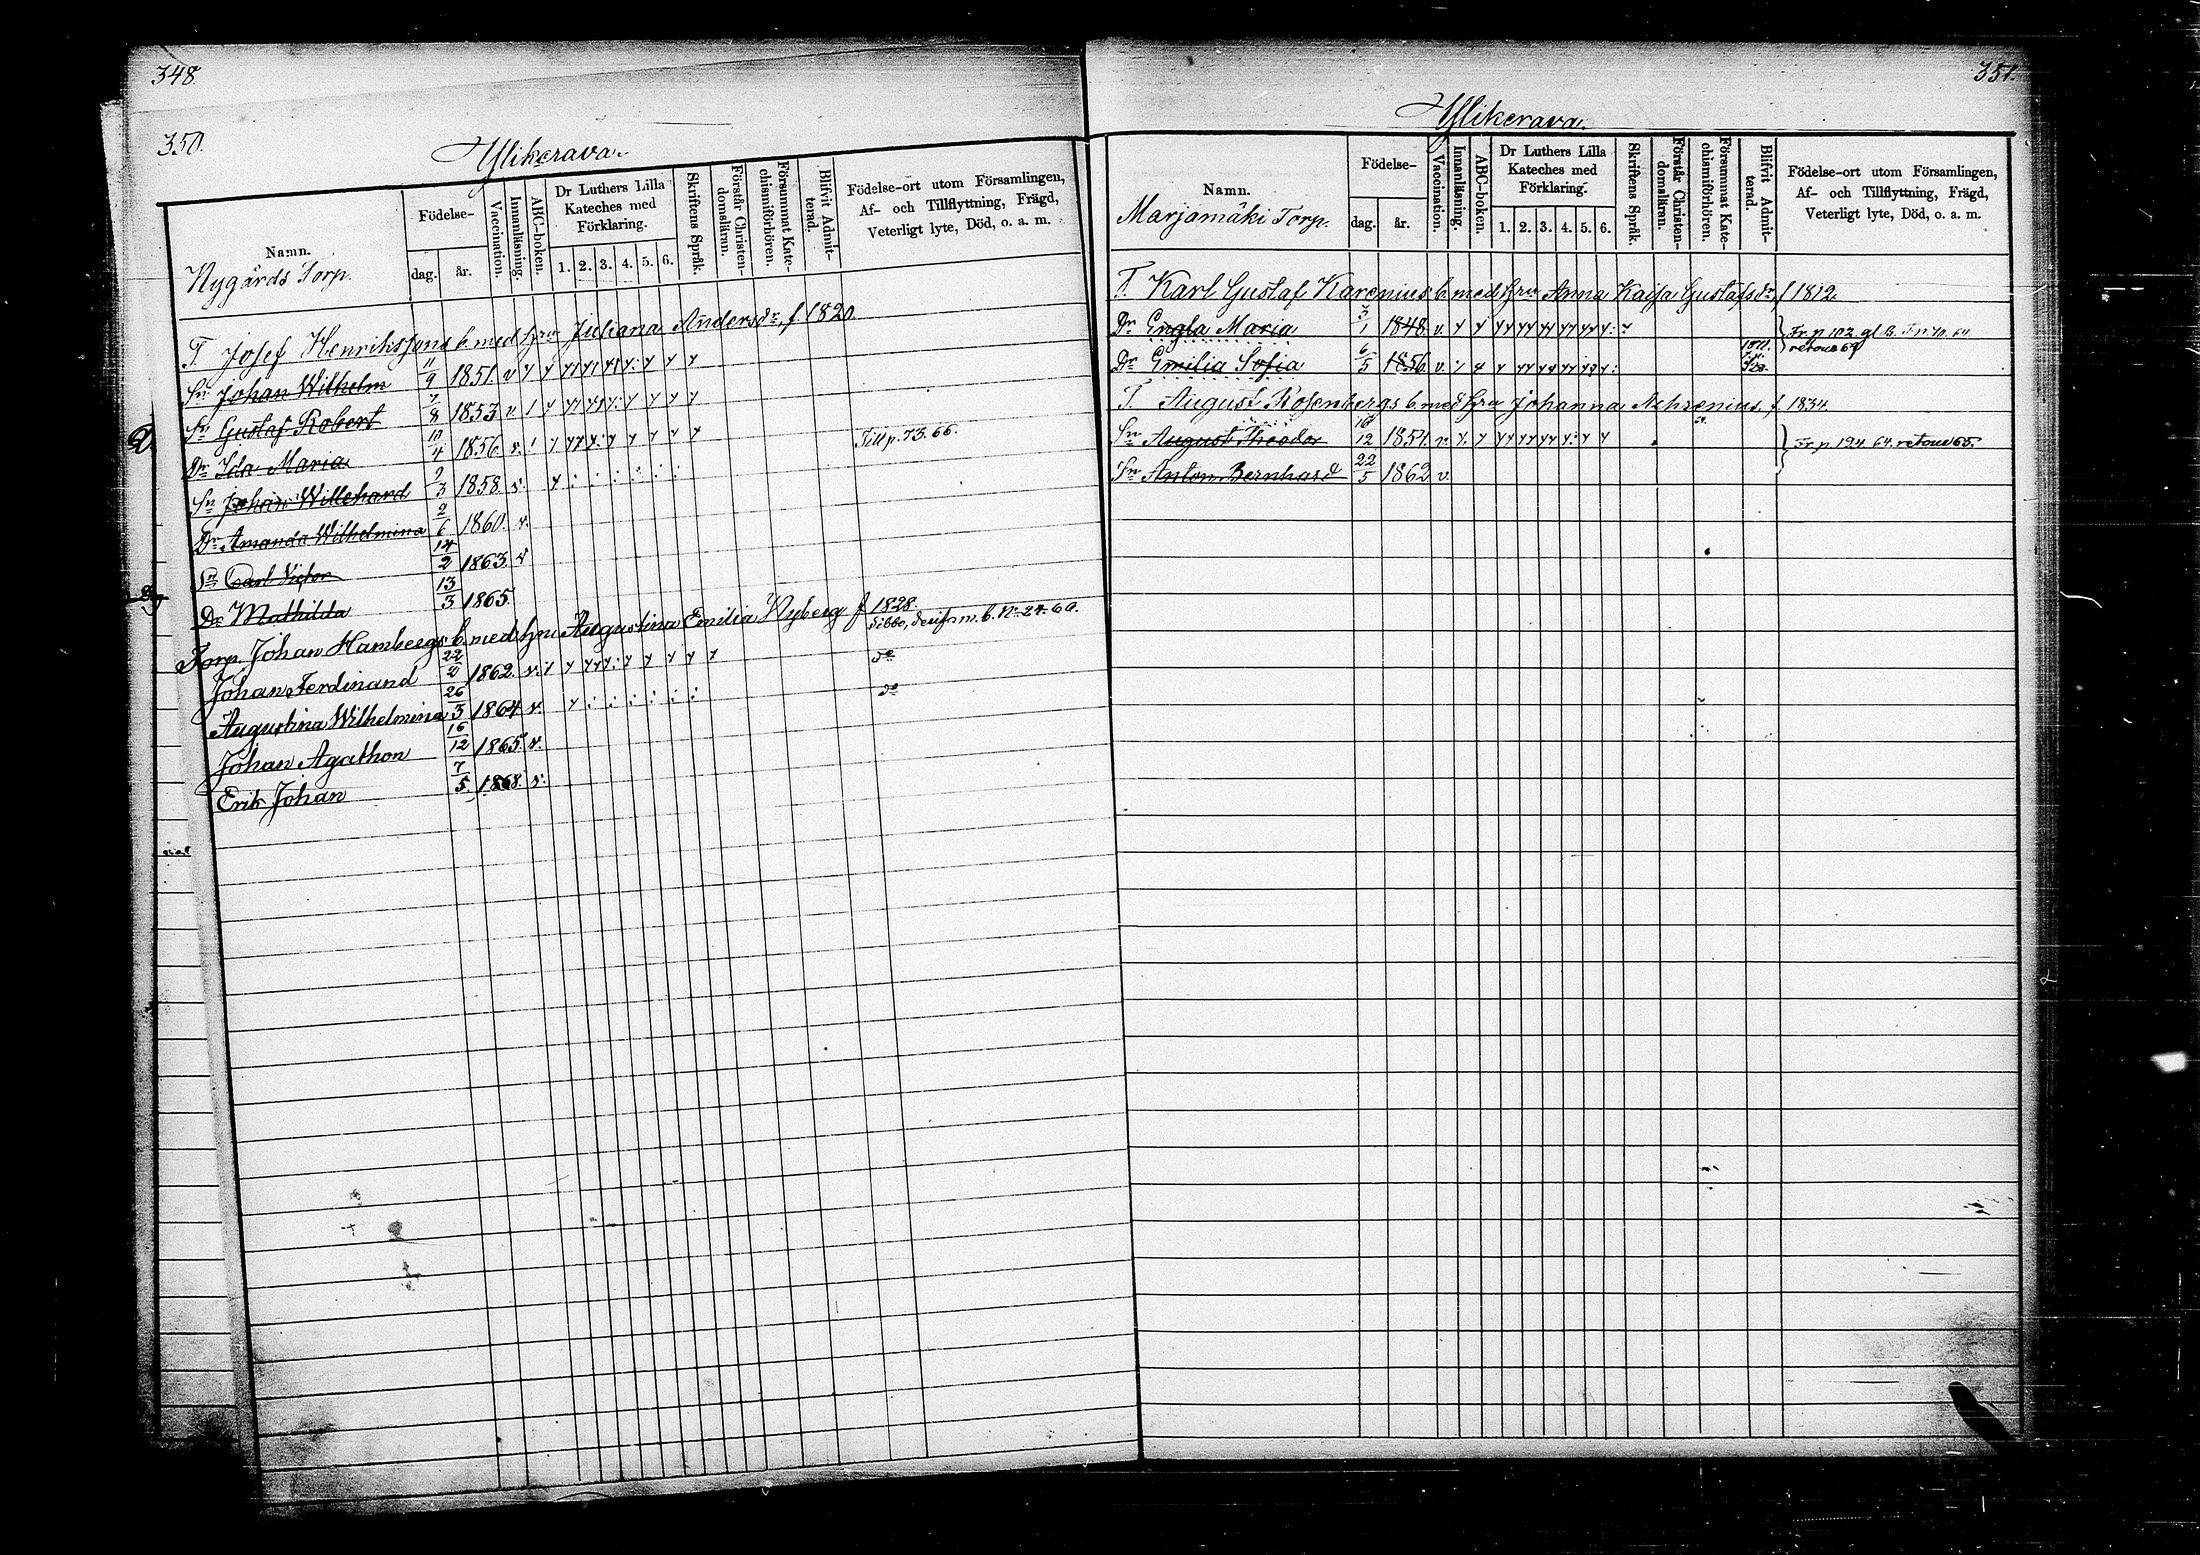 348.
350.
Ylikerava.
Namn.
Nygårds Torp.
Födelse-
dag.
år.
Vaccination.
Innanläsning.
ABC-boken.
Dr Luthers Lilla
Kateches med
Förklaring.
1. 2. 3. 4. 5. 6.
Skriftens Språk.
Förstår Christen-
domsläran.
Försummat Kate-
chismiförhören.
Blifvit Admit-
terad.
Födelse-ort utom Församlingen,
Af- och Tillflyttning, Frägd,
Veterligt lyte, Död, o. a. m.
T. Josef Henrikssons b. med hru Juliana Andersdr, f. 1820.
Sn Johan Wilhelm 11/9 1851. v
Sn Gustaf Robert 7/8 1853 v
Dr Ida Maria 10/4 1856 v. Till p. 73. 66.
Sn Johan Willehard 2/3 1858. v.
Dr Amanda Wilhelmina 2/6 1860. v.
Sn Carl Victor 14/2 1863. v
Dr Mathilda 13/3 1865.
Torp. Johan Hambergs b. med hru Augustina Emilia Nyberg f 1828.
Johan Ferdinand 22/2 1862. v. Sibbo, m. b. No 24. 69.
Augustina Wilhelmina 26/3 1864 v. do
Johan Agathon 16/12 1865. v. do
Erik Johan 7/5 1868. v.
351.
Ylikerava.
Namn.
Marjamäki Torp.
Födelse-
dag.
år.
Vaccination.
Innanläsning.
ABC-boken.
Dr Luthers Lilla
Kateches med
Förklaring.
1. 2. 3. 4. 5. 6.
Skriftens Språk.
Förstår Christen-
domsläran.
Försummat Kate-
chismiförhören.
Blifvit Admit-
terad.
Födelse-ort utom Församlingen,
Af- och Tillflyttning, Frägd,
Veterligt lyte, Död, o. a. m.
T. Karl Gustaf Karenius b. med hru Anna Kajsa Gustafsdr, f 1812.
Dr Engla Maria 3/1 1848. v Fr. p 102 gl. B.
Dr Emilia Sofia 6/5 1856. v. retour 69
T. August Rosenbergs b. med hru Johanna f. 1834.
Sn August Theodor 16/12 1857. v. Fr. p. 124 64. retour 65.
Sn Anton Bernhard 22/5 1862 v.